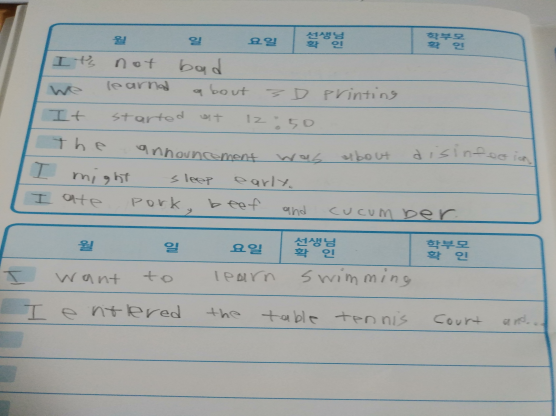 월 일 요일 선생님 확인 학부모 확인
It's not bad
We learned about 3D printing
It started at 12:50
The announcement was about disinfection
I might sleep early.
I ate pork, beef and cucumber.
월 일 요일 선생님 확인 학부모 확인
I want to learn swimming
I entered the table tennis court and...